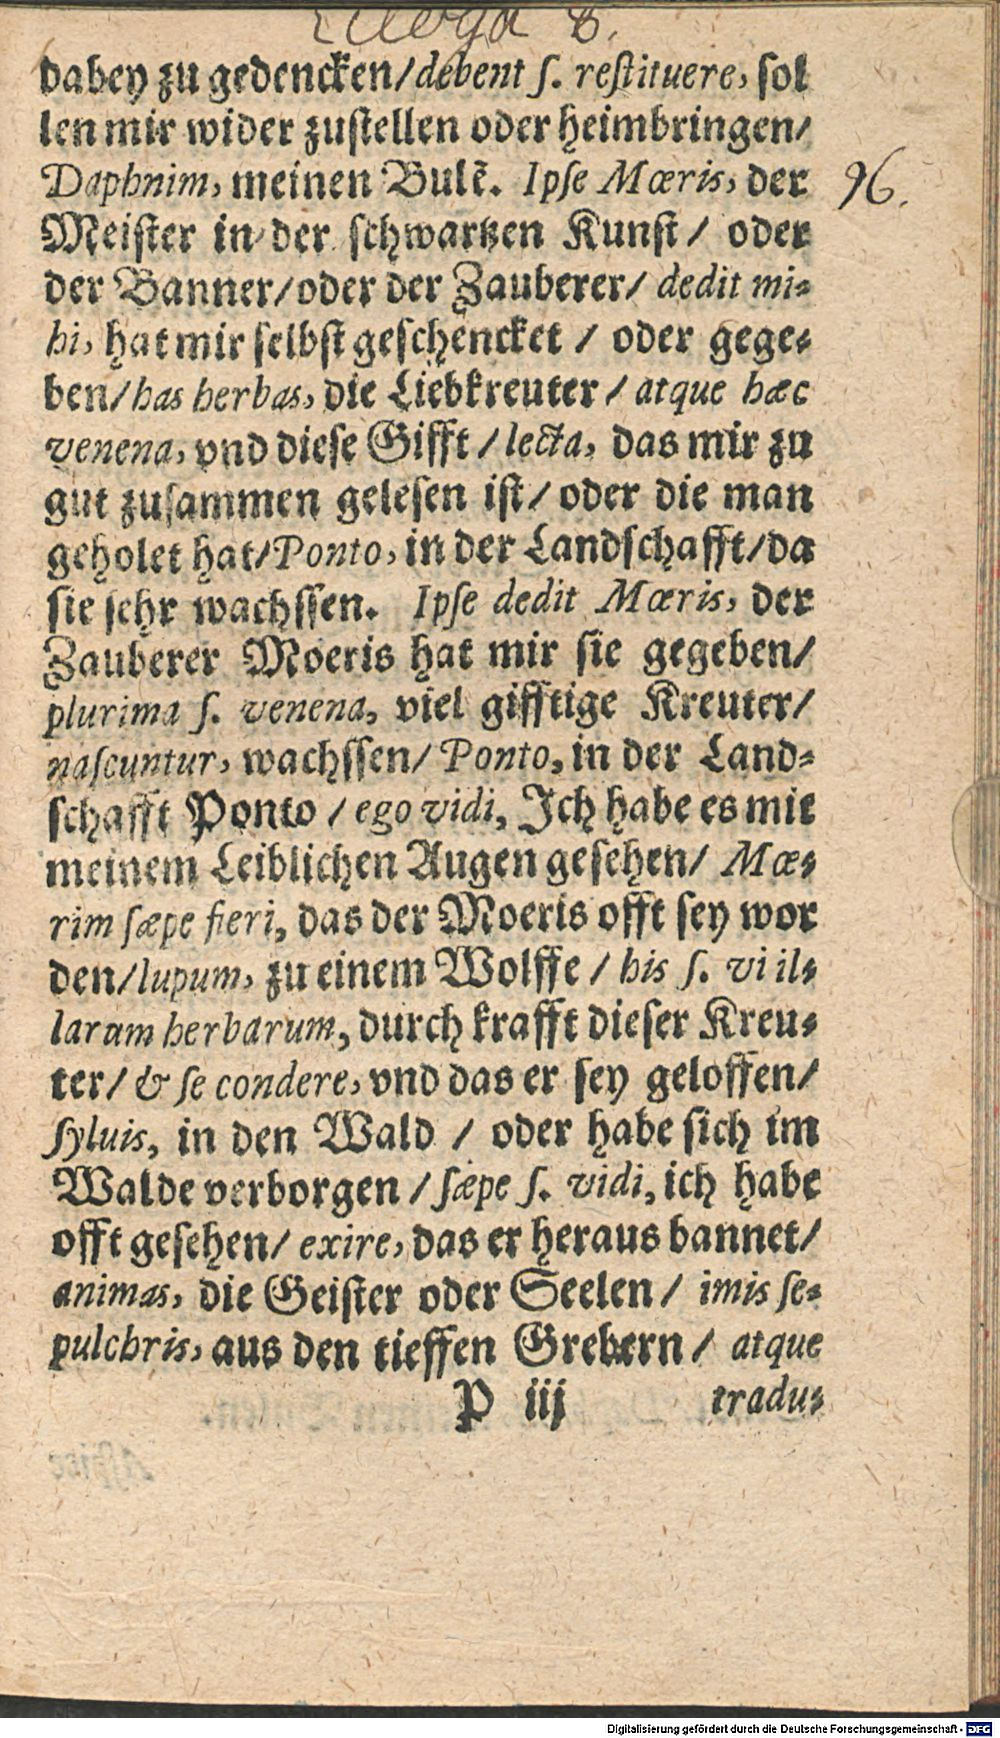 Ecloga 8.
dabey zu gedencken/ debent ſ. reſtituere, ſol
len mir wider zuſtellen oder heimbringen/
Daphnim, meinen Bulẽ. Ipſe Mœris, der
96.
Meiſter in der ſchwartzen Kunſt / oder
der Banner/ oder der Zauberer/ dedit mi-
hi, hat mir ſelbſt geſchencket / oder gege-
ben/ has herbas, die Liebkreuter / atque hæc
venena, vnd dieſe Gifft / lecta, das mir zu
gut zuſammen geleſen iſt/ oder die man
geholet hat/ Ponto, in der Landſchafft/ da
ſie ſehr wachſſen. Ipſe dedit Mœris, der
Zauberer Moeris hat mir ſie gegeben/
plurima ſ. venena, viel gifftige Kreuter/
naſcuntur, wachſſen/ Ponto, in der Land-
ſchafft Ponto / ego vidi, Ich habe es mit
meinem Leiblichen Augen geſehen/ Mœ-
rim ſæpe fieri, das der Moeris offt ſey wor
den/ lupum, zu einem Wolffe / his ſ. vi il-
larum herbarum, durch krafft dieſer Kreu-
ter/ & ſe condere, vnd das er ſey geloffen/
ſyluis, in den Wald / oder habe ſich im
Walde verborgen / ſæpe ſ. vidi, ich habe
offt geſehen/ exire, das er heraus bannet/
animas, die Geiſter oder Seelen / imis ſe-
pulchris, aus den tieffen Grebern / atque
P iij tradu-
Digitalisierung gefördert durch die Deutsche Forschungsgemeinschaft - DFG